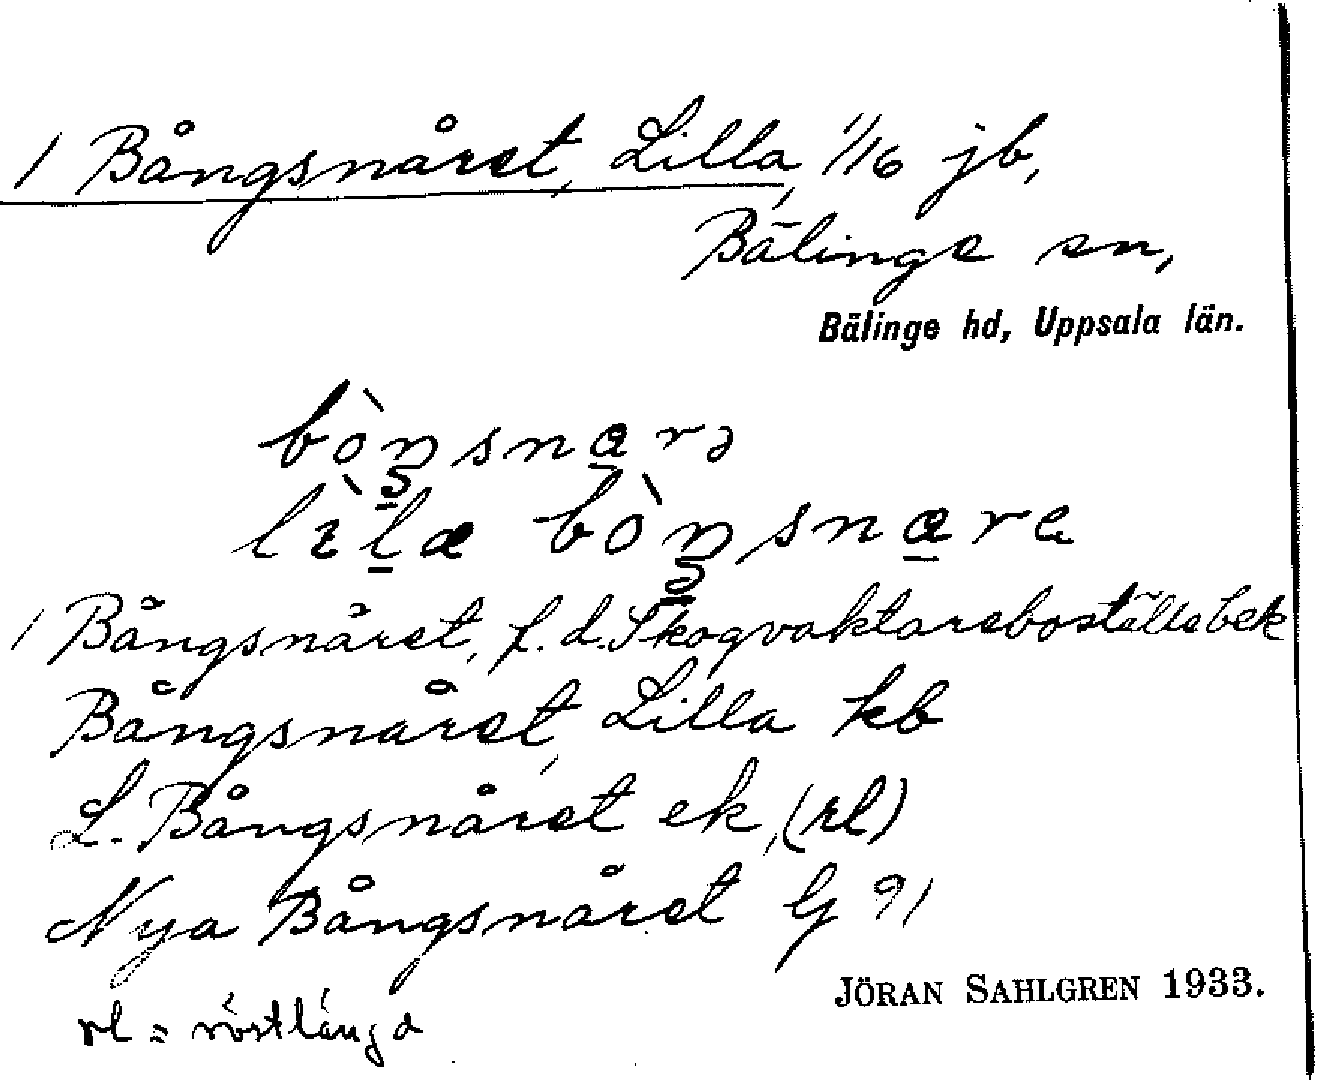 1 Bångsnåret, Lilla, 1/16 jb,
Bälinge sn,
Bälinge hd, Uppsala län.
1 Bångsnåret, f. d. Skogvaktareboställe bek
Bångsnåret, Lilla kb
L. Bångsnåret ek, (rl)
Nya Bångsnåret G 91
JÖRAN SAHLGREN 1933.
rl = röstlängd